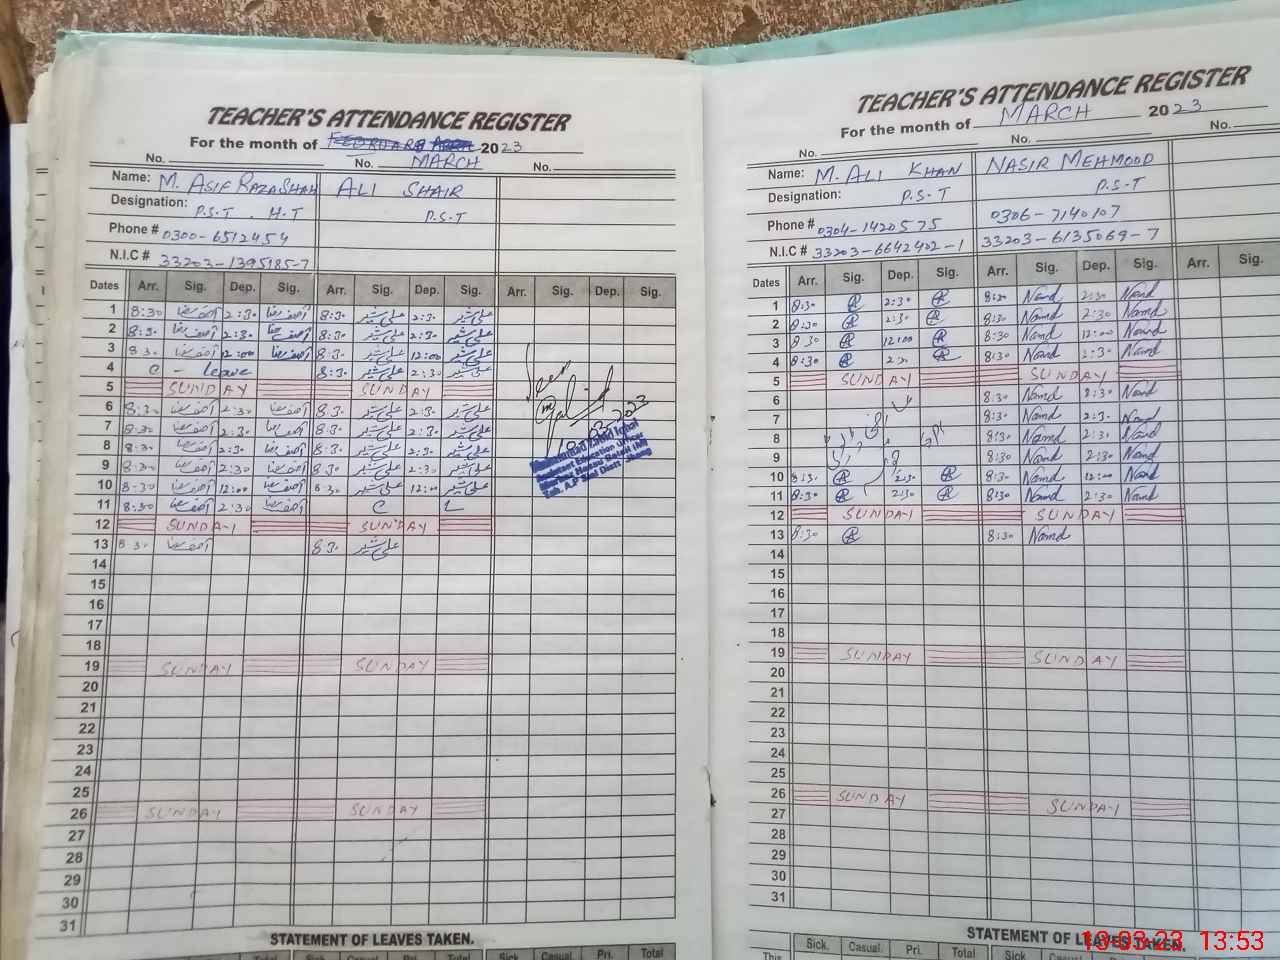 TEACHER'S ATTENDANCE REGISTER
For the month of 2023
MARCH
No. No. No.
Name: M. ASIF RAZA SHAH ALI SHAIR
Designation: P.S.T. H.T P.S.T
Phone # 0300-6512454
N.I.C # 33203-1395185-7
Dates Arr. Sig. Dep. Sig. Arr. Sig. Dep. Sig. Arr. Sig. Dep. Sig.
1 8:30 آصف رضا 2:30 آصف رضا 8:30 علی شیر 2:30 علی شیر
2 8:30 آصف رضا 2:30 آصف رضا 8:30 علی شیر 2:30 علی شیر
3 8:30 آصف رضا 12:00 آصف رضا 8:30 علی شیر 12:00 علی شیر
4 C - leave 8:30 علی شیر 2:30 علی شیر
5 SUNDAY SUNDAY
6 8:30 آصف رضا 2:30 آصف رضا 8:30 علی شیر 2:30 علی شیر
7 8:30 آصف رضا 2:30 آصف رضا 8:30 علی شیر 2:30 علی شیر
8 8:30 آصف رضا 2:30 آصف رضا 8:30 علی شیر 2:30 علی شیر
9 8:30 آصف رضا 2:30 آصف رضا 8:30 علی شیر 2:30 علی شیر
10 8:30 آصف رضا 12:00 آصف رضا 8:30 علی شیر 12:00 علی شیر
11 8:30 آصف رضا 2:30 آصف رضا C L
12 SUNDAY SUNDAY
13 8:30 آصف رضا 8:30 علی شیر
14
15
16
17
18
19 SUNDAY SUNDAY
20
21
22
23
24
25
26 SUNDAY SUNDAY
27
28
29
30
31
Seen
Muhammad Zahid Iqbal
Assistant Education Officer
STATEMENT OF LEAVES TAKEN.
Total Sick Casual Pri. Total
TEACHER'S ATTENDANCE REGISTER
For the month of MARCH 2023
No. No. No.
Name: M. ALI KHAN NASIR MEHMOOD
Designation: P.S.T P.S.T
Phone # 0304-1420575 0306-7140107
N.I.C # 33203-6642402-1 33203-6135069-7
Dates Arr. Sig. Dep. Sig. Arr. Sig. Dep. Sig. Arr. Sig.
1 8:30 2:30 8:30 2:30
2 8:30 2:30 8:30 2:30
3 8:30 12:00 8:30 12:00
4 8:30 2:30 8:30 2:30
5 SUNDAY SUNDAY
6 8:30 2:30
7 8:30 2:30
8 8:30 2:30
9 8:30 2:30
10 8:30 2:30 8:30 12:00
11 8:30 2:30 8:30 2:30
12 SUNDAY SUNDAY
13 8:30 8:30
14
15
16
17
18
19 SUNDAY SUNDAY
20
21
22
23
24
25
26 SUNDAY SUNDAY
27
28
29
30
31
STATEMENT OF LEAVES TAKEN.
This Sick. Casual. Pri. Total Sick Casual Pri. Total
13-03-23 13:53